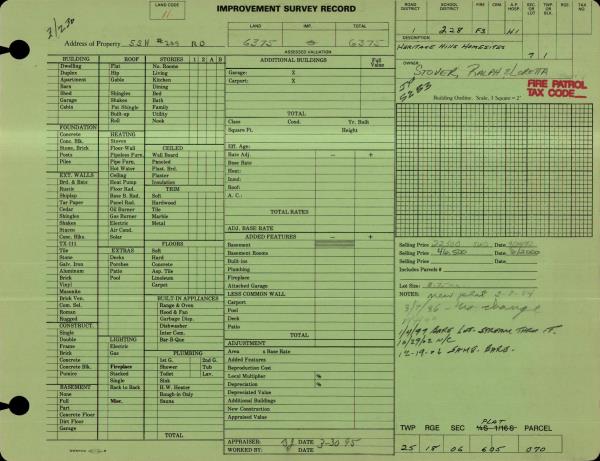 LAND CODE
11
IMPROVEMENT SURVEY RECORD
LAND IMP. TOTAL
6375 6375
ASSESSED VALUATION
Address of Property SSH # 209 RO
ROAD DISTRICT SCHOOL DISTRICT FIRE CODE A.P. HOSP. TWP OR BLK REG. TAX NO
228 F3 H1
DESCRIPTION
HERITAGE HILLS HOMESITES
7 1
OWNER
STOVER, RALPH & LORETTA
FIRE PATROL
TAX CODE
Building Outline. Scale, 1 Square = 2'
BUILDING ROOF STORIES 1 2 A B
Dwelling Flat No. Rooms
Duplex Hip Living
Apartment Gable Kitchen
Barn Dining
Shed Shingles Bed
Garage Shakes Bath
Cabin Pat Shingle Family
Built-up Utility
Roll Nook
FOUNDATION
Concrete HEATING
Conc. Blk. Stoves CEILED
Stone, Brick Floor-Wall Wall Board
Posts Pipeless Furn. Paneled
Piles Pipe Furn. Plast. Brd.
Hot Water Plaster
EXT. WALLS Ceiling Insulation
Brd. & Bats Heat Pump TRIM
Rustic Floor Rad. Soft
Shiplap Base B. Rad. Hardwood
Tar Paper Panel Rad. Tile
Cedar Oil Burner Marble
Shingles Gas Burner Metal
Shakes Electric
Stucco Air Cond.
Conc. Blks Solar FLOORS
TX 111 Soft
Tile EXTRAS Hard
Stone Decks Concrete
Galv. Iron Porches Asp. Tile
Aluminum Patio Linoleum
Brick Pool Carpet
Vinyl
Masonite
Brick Ven. BUILT-IN APPLIANCES
Com. Sel. Range & Oven
Roman Hood & Fan
Rugged Garbage Disp.
CONSTRUCT. Dishwasher
Single Inter Com.
Double LIGHTING Bar-B-Que
Frame Electric
Brick Gas PLUMBING
Concrete 1st G. 2nd G.
Concrete Blk. Fireplace Shower Tub
Pumice Stacked Toilet Lav.
Single Sink
BASEMENT Back to Back H.W. Heater
None Rough-in Only
Full Misc. Sauna
Part
Concrete Floor
Dirt Floor
Garage TOTAL
ADDITIONAL BUILDINGS Full Value
Garage: X
Carport: X
TOTAL
Class Cond. Yr. Built
Square Ft. Height
Eff. Age:
Rate Adj. − +
Base Rate
Heat:
Insul:
Roof:
A. C.:
TOTAL RATES
ADJ. BASE RATE
ADDED FEATURES − +
Basement
Basement Rooms
Built-ins
Plumbing
Fireplace
Attached Garage
LESS COMMON WALL
Carport
Pool
Deck
Patio
TOTAL
ADJUSTMENT
Area x Base Rate
Added Features
Reproduction Cost
Local Multiplier %
Depreciation %
Depreciated Value
Additional Buildings
New Construction
Appraised Value
APPRAISER: DATE 3-30-95
WORKED BY: DATE
Selling Price 22500 Date
Selling Price 46,500 Date 6/2000
Selling Price Date
Includes Parcels #
Lot Size:
NOTES: new plat
no change
1/4/97 BARE LOT. STREAM THRU IT.
10/29/02 N/C
12-19-06 SAME. BARE.
PLAT
TWP RGE SEC ¼S-1/16S PARCEL
25 18 06 605 070